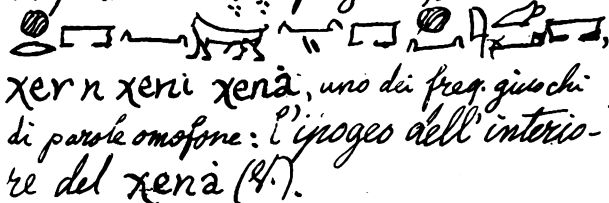 χer n χeni χenȧ, uno dei freq. giuochi
di parole omofone: l'ipogeo dell'interio-
re del χenȧ